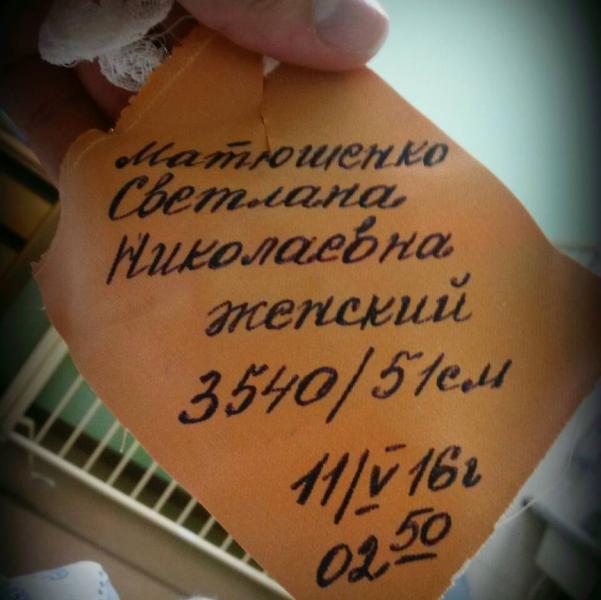 Матюшенко
Светлана
Николаевна
женский
3540/51см
11/V 16г
02 50